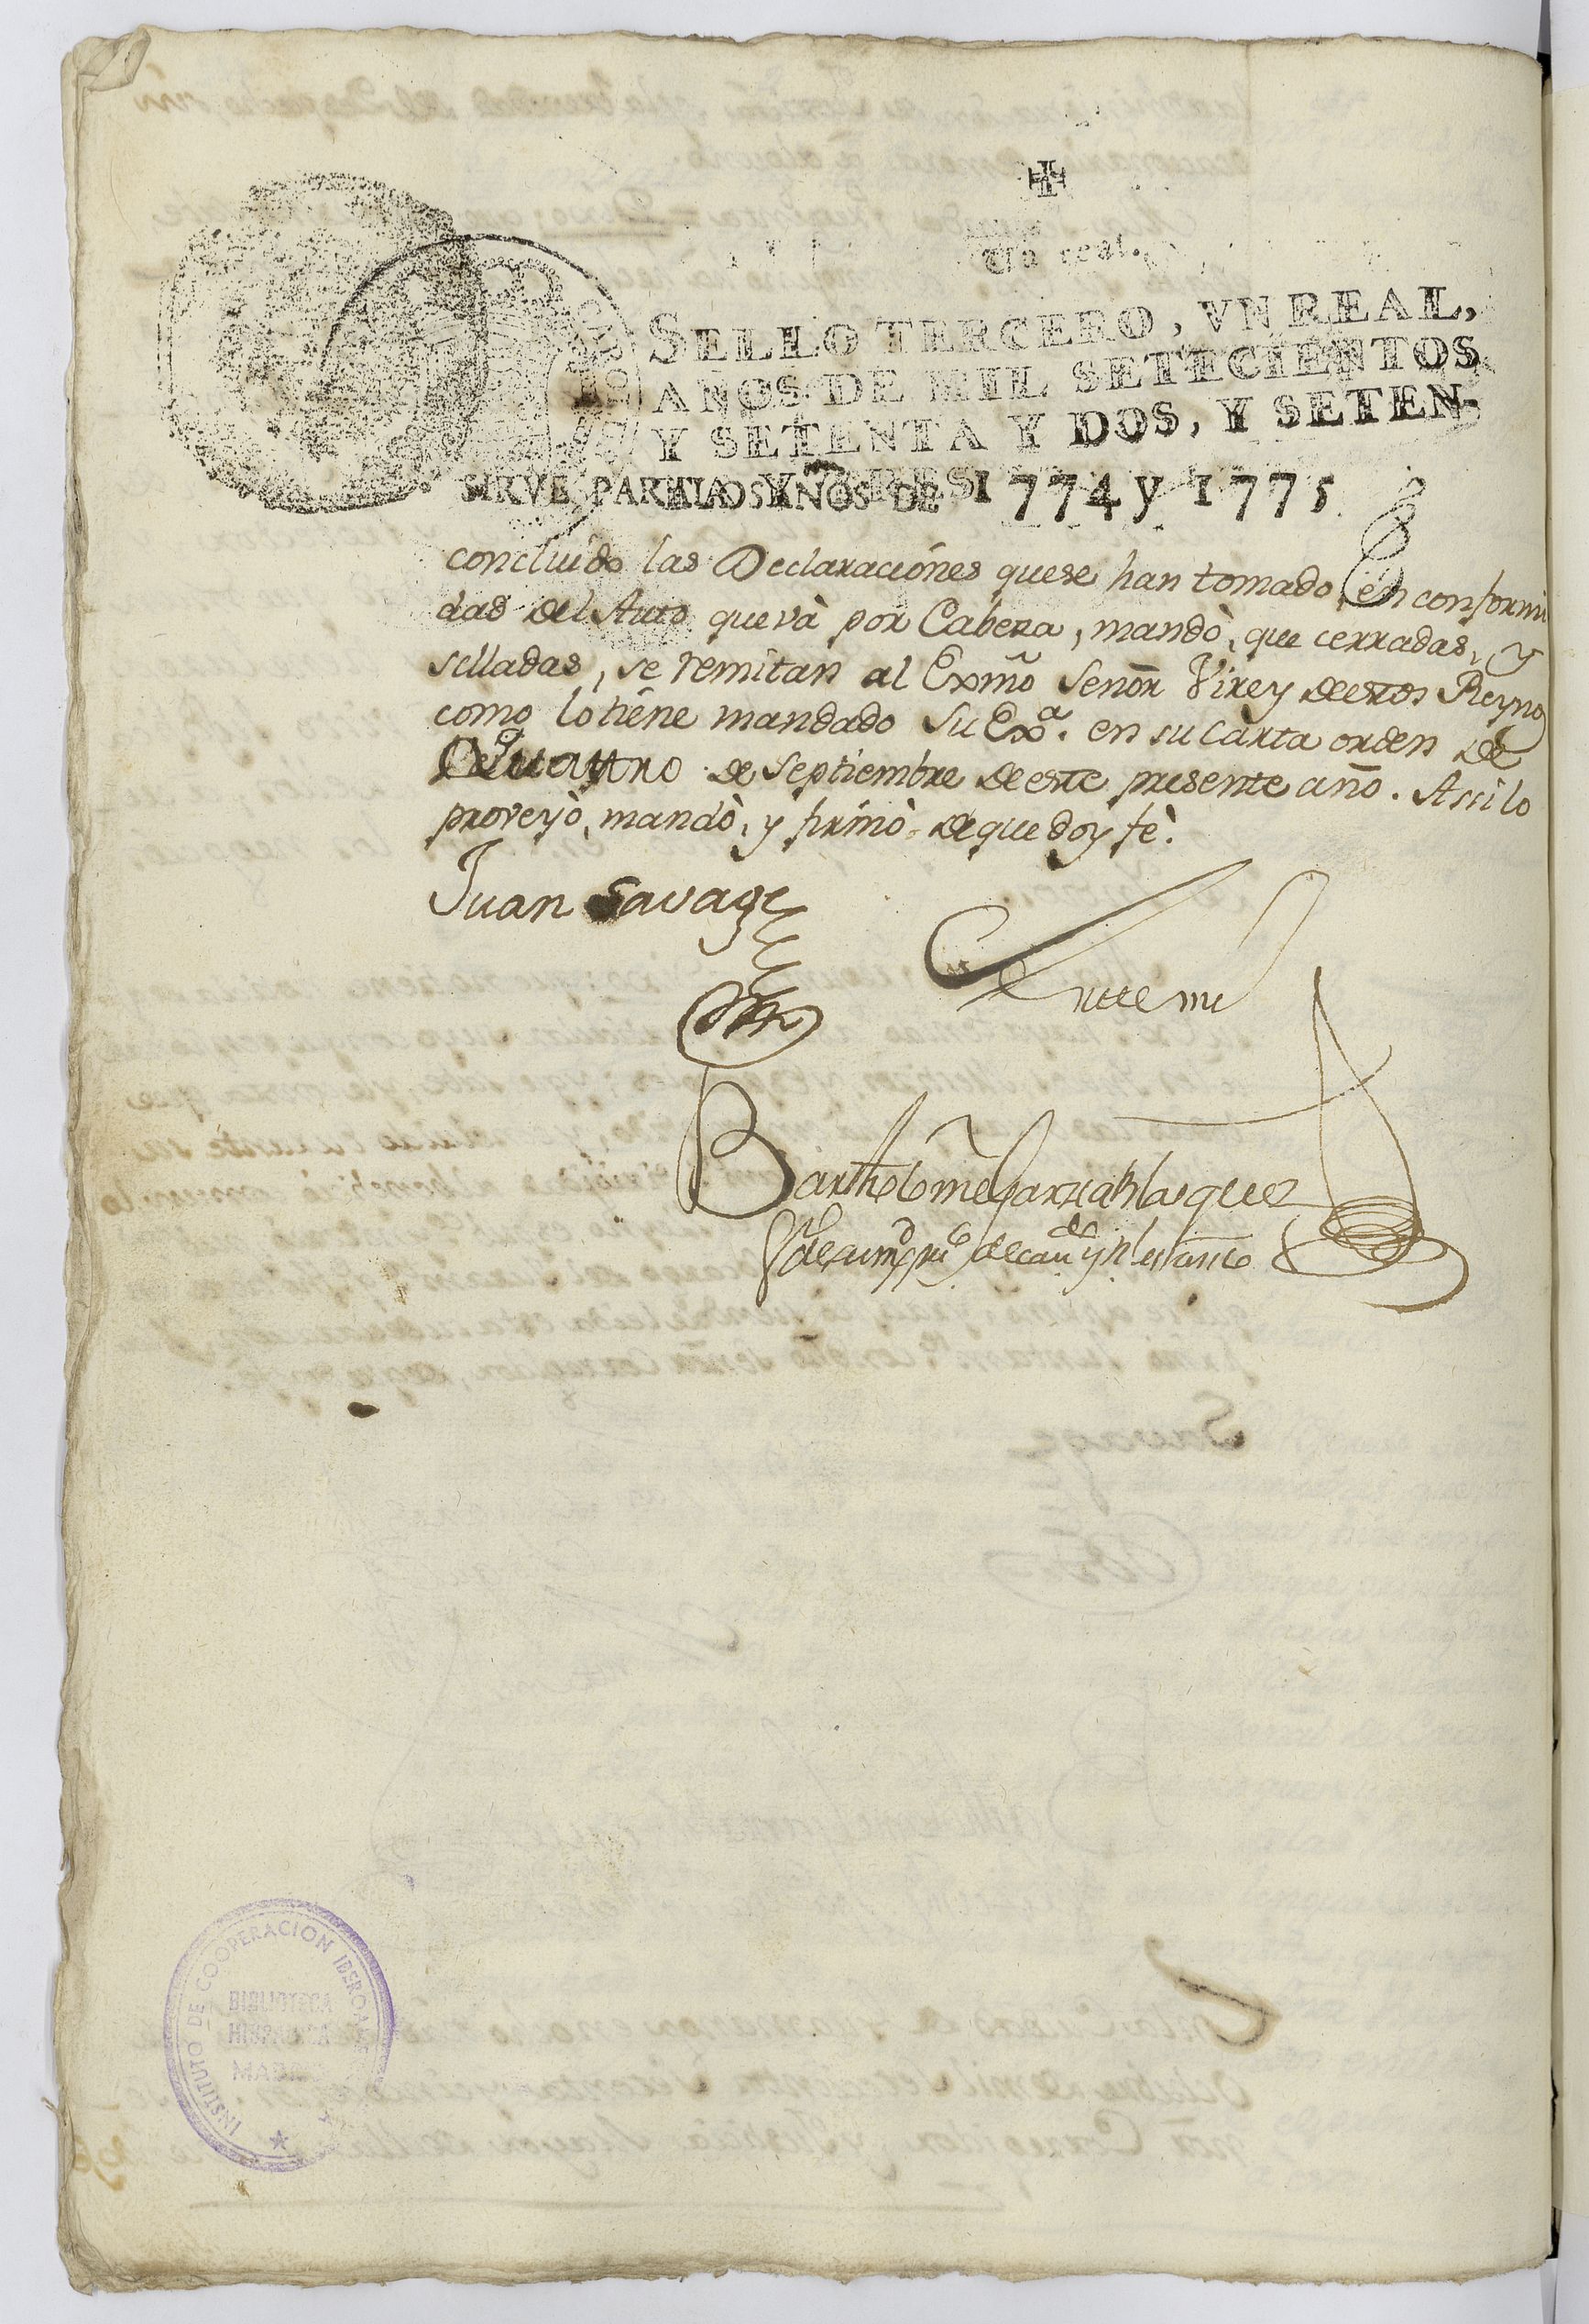 Un real.
SELLO TERCERO, VN REAL,
AÑOS DE MIL SETECIENTOS
Y SETENTA Y DOS, Y SETEN-
TA Y TRES
SIRVE PARA LOS AÑOS DE 1774 y 1775
concluido las Declaraciónes quese han tomado, en conformi
dad del Auto que và por Cabeza, mandò, que cerradas, y
selladas, se remitan al Exmõ Senõr Virey de estos Reynos
como lo tiéne mandado Su Exª. en su Carta orden de
Quattro de Septiembre de este presente año. Assi lo
proveyò, mandò, y firmò de que doy fè.
Juan Savage
Ante mi
Bartholome Garzia Blasquez
INSTITUTO DE COOPERACION IBEROAMERICANA
BIBLIOTECA
HISPANICA
MADRID